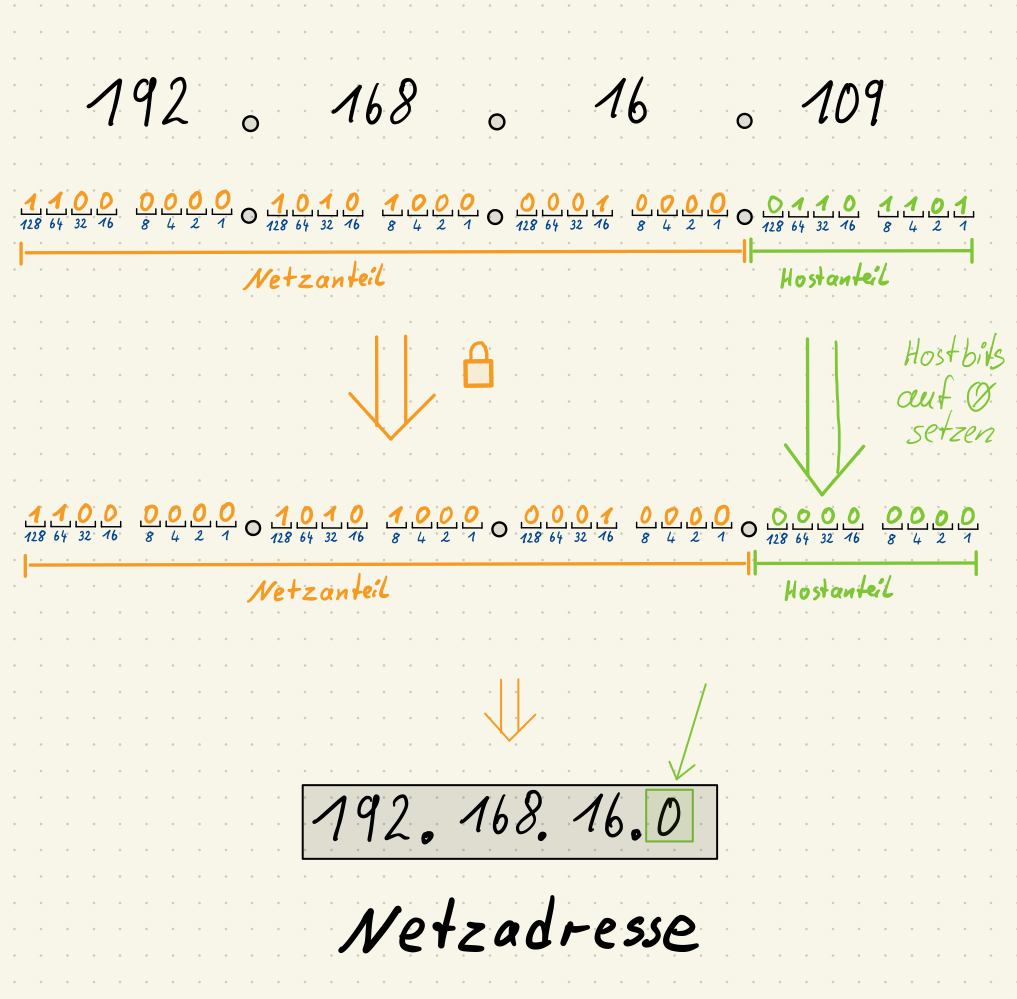 192 . 168 . 16 . 109
1 1 0 0 0 0 0 0 . 1 0 1 0 1 0 0 0 . 0 0 0 1 0 0 0 0 . 0 1 1 0 1 1 0 1
128 64 32 16 8 4 2 1 128 64 32 16 8 4 2 1 128 64 32 16 8 4 2 1 128 64 32 16 8 4 2 1
Netzanteil Hostanteil
Hostbits
auf 0
setzen
1 1 0 0 0 0 0 0 . 1 0 1 0 1 0 0 0 . 0 0 0 1 0 0 0 0 . 0 0 0 0 0 0 0 0
128 64 32 16 8 4 2 1 128 64 32 16 8 4 2 1 128 64 32 16 8 4 2 1 128 64 32 16 8 4 2 1
Netzanteil Hostanteil
192. 168. 16. 0
Netzadresse